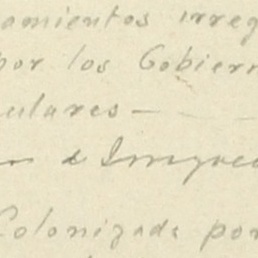 amientos irreg
por los Gobiern
culares —
de Inmigrac
Colonizada por